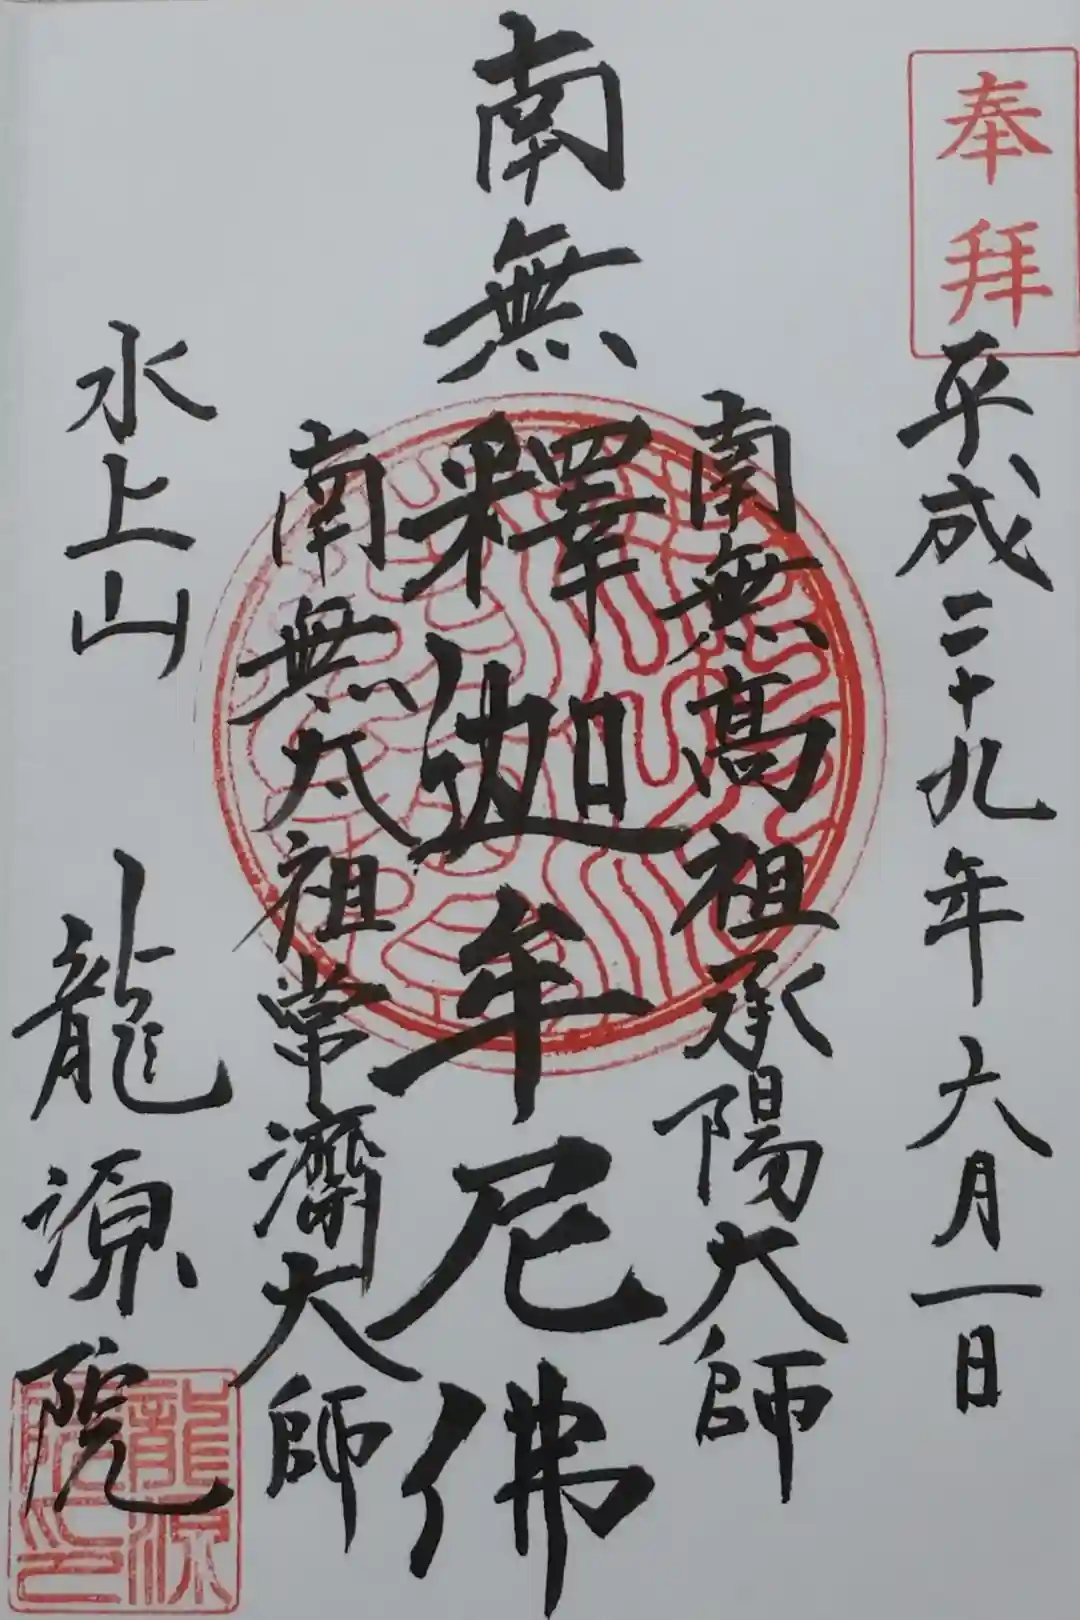 奉拜
平成二十九年六月一日
南無高祖承陽大師
南無釋迦牟尼佛
南無太祖常濟大師
水上山 龍源院
龍源院印